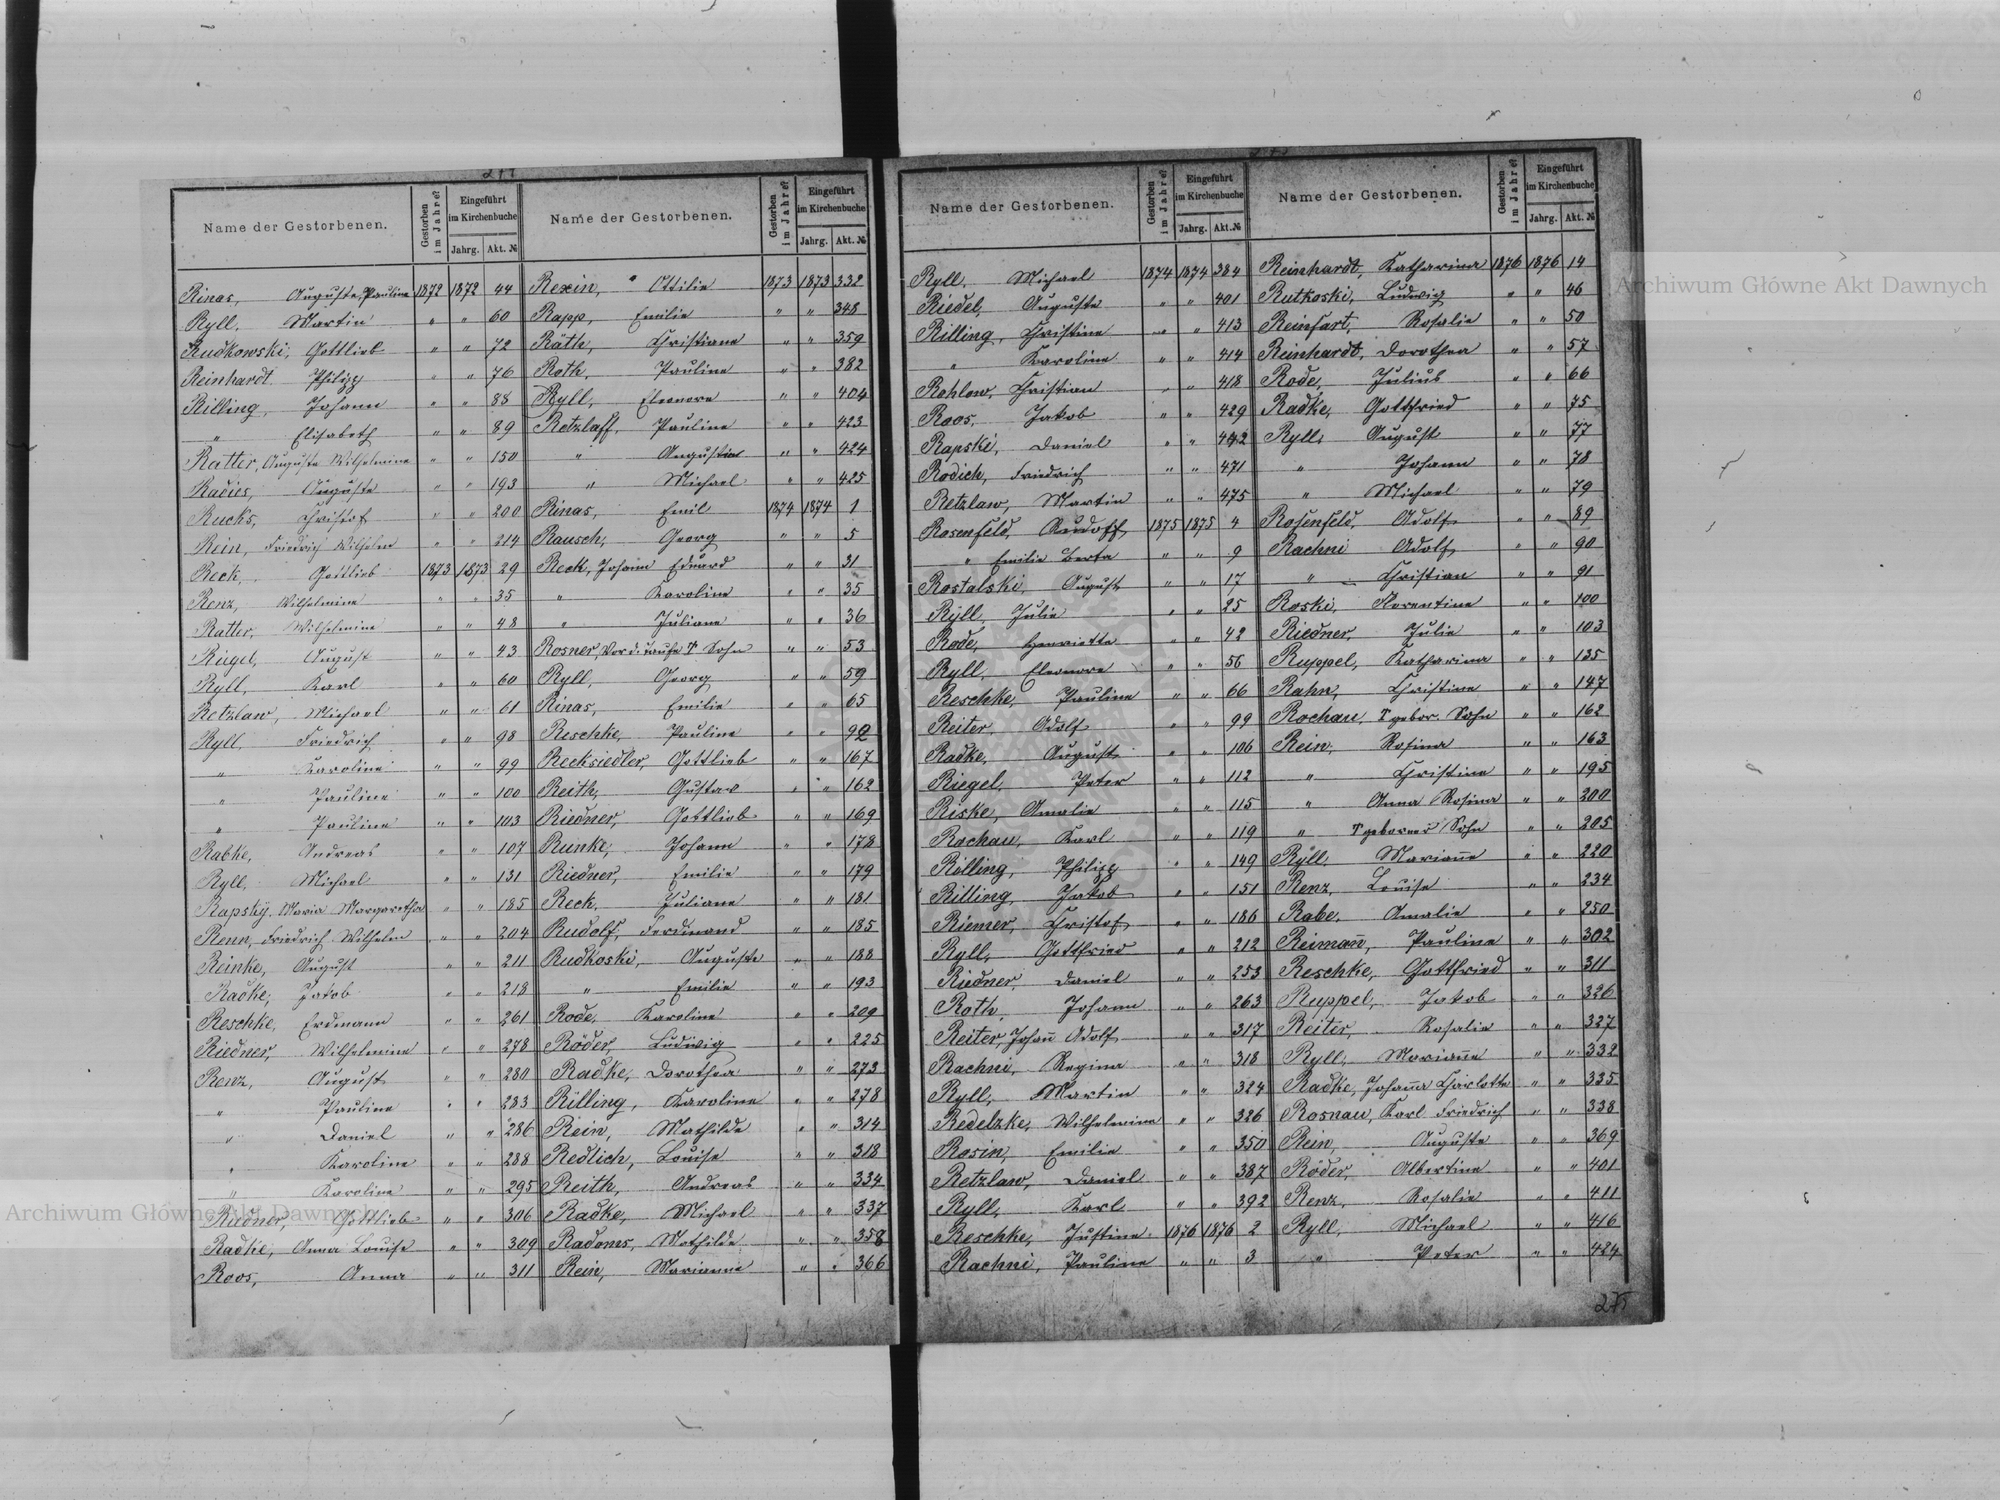 Name der Gestorbenen. Gestorben im Jahre? Eingeführt im Kirchenbuche Jahrg. Akt. №
Rinas, Auguste, Pauline 1872 1872 44
Ryll, Martin " " 60
Rudkowski, Gottlieb " " 72
Reinhardt Philipp " " 76
Rilling, Johann " " 88
" Elisabeth " " 89
Ratter, Auguste Wilhelmine " " 150
Radies, Auguste " " 193
Rucks, Christof " " 200
Rein, Friedrich Wilhelm " " 214
Reck, Gottlieb 1873 1873 29
Renz, Wilhelmine " " 35
Ratter, Wilhelmine " " 48
Riegel, August " " 43
Ryll, Karl " " 60
Retzlaw, Michael " " 61
Ryll, Friedrich " " 98
" Karoline " " 99
" Pauline " " 100
" Pauline " " 103
Rabke, Andreas " " 107
Ryll, Michael " " 131
Rapsky, Maria Margaretha " " 185
Renn, Friedrich Wilhelm " " 204
Reinke, August " " 211
Radke, Jakob " " 218
Reschke, Erdmann " " 261
Riedner, Wilhelmine " " 278
Renz, August " " 280
" Pauline " " 283
" Daniel " " 286
" Karoline " " 288
" Karoline " " 295
Riedner, Gottlieb " " 306
Radke, Anna Louise " " 309
Roos, Anna " " 311
Name der Gestorbenen. Gestorben im Jahre? Eingeführt im Kirchenbuche Jahrg. Akt. №
Rexin, Ottilie 1873 1873 332
Rapp, Emilie " " 348
Räth, Christiane " " 359
Roth, Pauline " " 382
Ryll, Eleonore " " 404
Retzlaff, Pauline " " 423
" Augustin " " 424
" Michael " " 425
Rinas, Emil 1874 1874 1
Rausch, Georg " " 5
Reck, Johann Eduard " " 31
" Karoline " " 35
" Juliane " " 36
Rosner, Vor d. Taufe † Sohn " " 53
Ryll, Georg " " 59
Rinas, Emilie " " 65
Reschke, Pauline " " 92
Recksiedler, Gottlieb " " 167
Reith, Gustav " " 162
Riedner, Gottlieb " " 169
Runke, Johann " " 178
Riedner, Emilie " " 179
Reck, Juliane " " 181
Rudolf, Ferdinand " " 185
Rudkoski, Auguste " " 188
" Emilie " " 193
Rode, Karoline " " 209
Röder, Ludwig " " 225
Radke, Dorothea " " 273
Rilling, Karoline " " 278
Rein, Mathilde " " 314
Redlich, Louise " " 318
Reith, Andreas " " 334
Radke, Michael " " 337
Radoms, Mathilde " " 358
Rein, Marianne " " 366
Name der Gestorbenen. Gestorben im Jahre? Eingeführt im Kirchenbuche Jahrg. Akt. №
Ryll, Michael 1874 1874 384
Riedel, Auguste " " 401
Rilling, Christine " " 413
" Karoline " " 414
Rohlow, Christian " " 418
Roos, Jakob " " 429
Rapski, Daniel " " 442
Rodich, Friedrich " " 471
Retzlaw, Martin " " 475
Rosenfeld, Rudolf 1875 1875 4
" Emilie Berta " " 9
Rostalski, August " " 17
Ryll, Julie " " 25
Rode, Henriette " " 42
Ryll, Eleonore " " 56
Reschke, Pauline " " 66
Reiter, Adolf " " 99
Radke, August " " 106
Riegel, Peter " " 112
Riske, Amalie " " 115
Rochau, Karl " " 119
Rölling, Philipp " " 149
Rilling, Jakob " " 151
Riemer, Christof " " 186
Ryll, Gottfried " " 212
Riedner, Daniel " " 253
Roth, Johann " " 263
Reiter, Johan̄ Adolf " " 317
Rachni, Regina " " 318
Ryll, Martin " " 324
Redelzke, Wilhelmine " " 326
Rosin, Emilie " " 350
Retzlaw, Daniel " " 387
Ryll, Karl " " 392
Reschke, Justine 1876 1876 2
Rachni, Pauline " " 3
Name der Gestorbenen. Gestorben im Jahre? Eingeführt im Kirchenbuche Jahrg. Akt. №
Reinhardt, Katharina 1876 1876 14
Rutkoski, Ludwig " " 46
Reinhart, Rosalie " " 50
Reinhardt, Dorothea " " 57
Rode, Julius " " 66
Radke, Gottfried " " 75
Ryll, August " " 77
" Johann " " 78
" Michael " " 79
Rosenfeld, Adolf " " 89
Rachni Adolf " " 90
" Christian " " 91
Roski, Florentine " " 100
Riedner, Julie " " 103
Ruppel, Katharina " " 135
Rahn, Christine " " 147
Rochau, † gebor. Sohn " " 162
Rein, Rosina " " 163
" Christine " " 195
" Anna Rosina " " 200
" † geborner Sohn " " 205
Ryll, Marian̄e " " 220
Renz, Louise " " 234
Rabe, Amalie " " 250
Reiman̄, Pauline " " 302
Reschke, Gottfried " " 311
Ruppel, Jakob " " 326
Reiter, Rosalie " " 327
Ryll, Marian̄e " " 332
Radke, Johan̄a Charlotte " " 335
Rosnau, Karl Friedrich " " 338
Rein, Auguste " " 369
Röder, Albertine " " 401
Renz, Rosalie " " 411
Ryll, Michael " " 416
" Peter " " 424
275
Archiwum Główne Akt Dawnych
Archiwum Główne Akt Dawnych